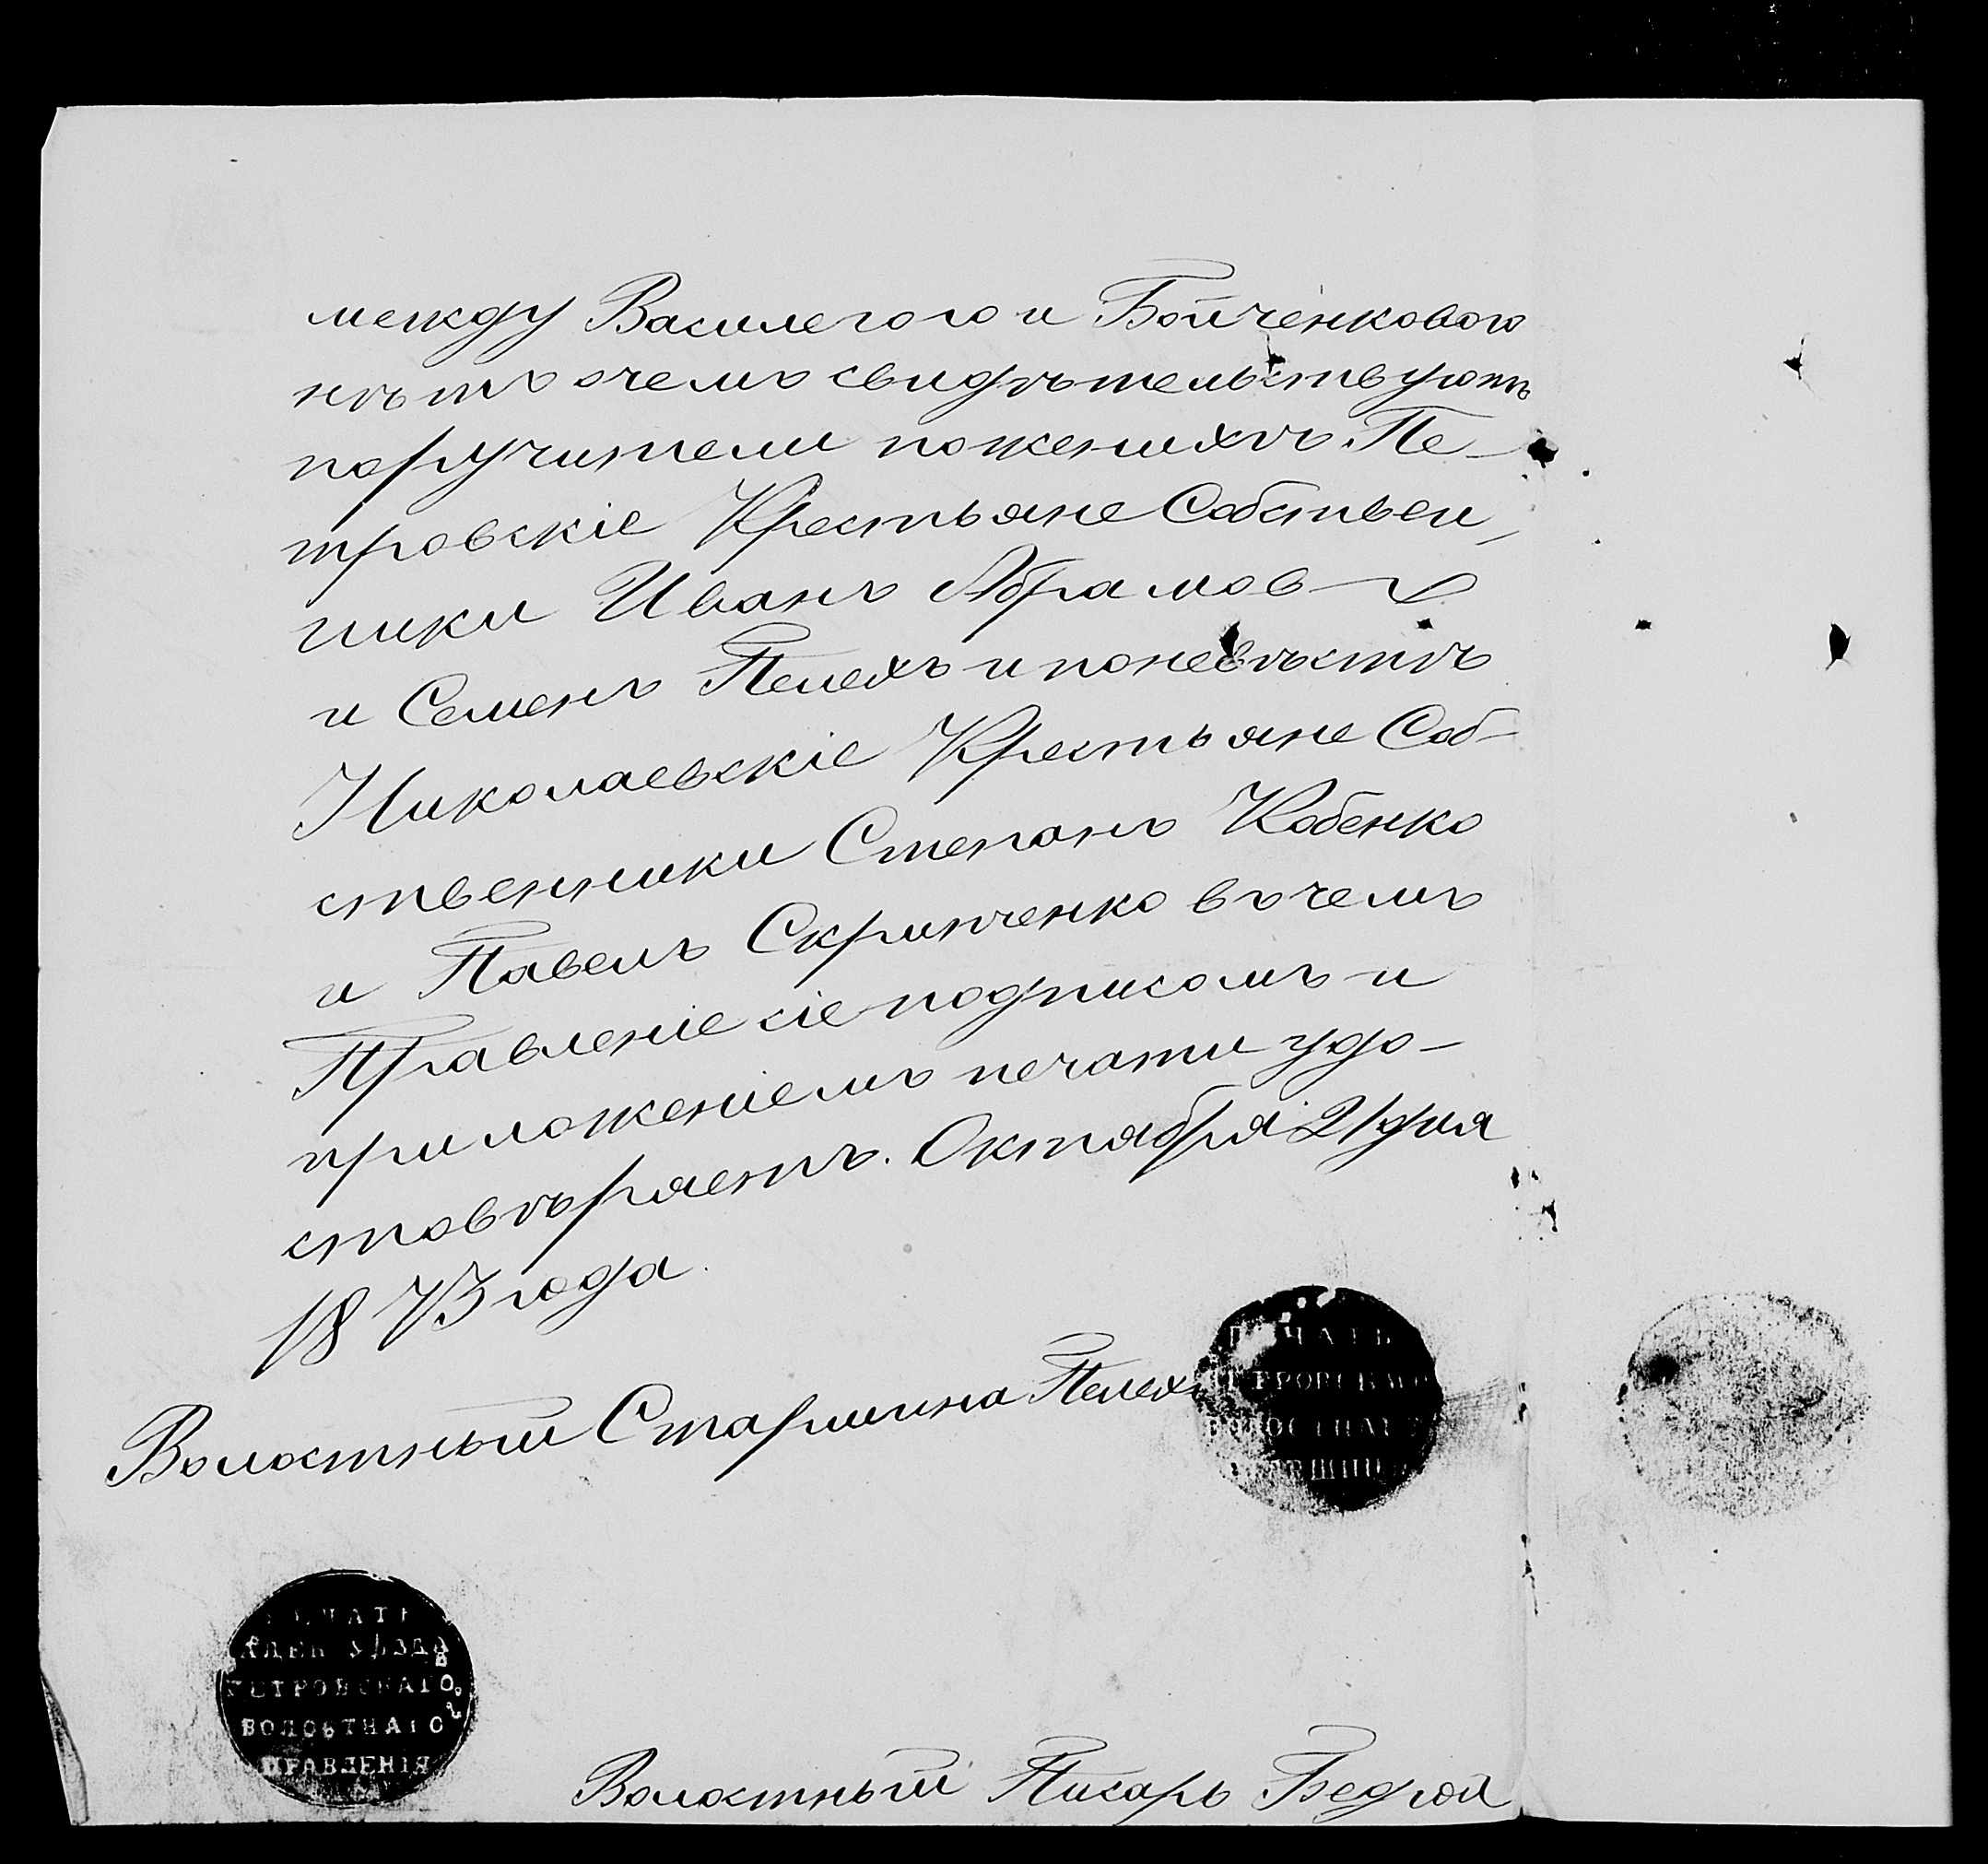 между Василегою и Бойченковою
нѣтъ очемъ свидѣтельствуютъ
поручители поженихѣ Пе-
тровскіе Крестьяне Собствен,
ники Иванъ Абрамов
и Семенъ Пелехъ и поневѣстѣ
Николаевскіе Крестьяне Соб-
ственники Степанъ Кобенко
и Павелъ Скрипченко въчемъ
Правленіе сіе подписомъ и
приложеніемъ печати удо-
стовѣряетъ. Октября 21 дня
1873 года.
Волостный Старшина Пелехъ
ПЕЧАТЬ
ПЕТРОВСКАГО
ВОЛОСТНАГО
СТАРШИНЫ
ПЕЧАТЬ
УѢЗДА
ПЕТРОВСКАГО
ВОЛОСТНАГО
ПРАВЛЕНІЯ
Волостный Писарь Бедрой